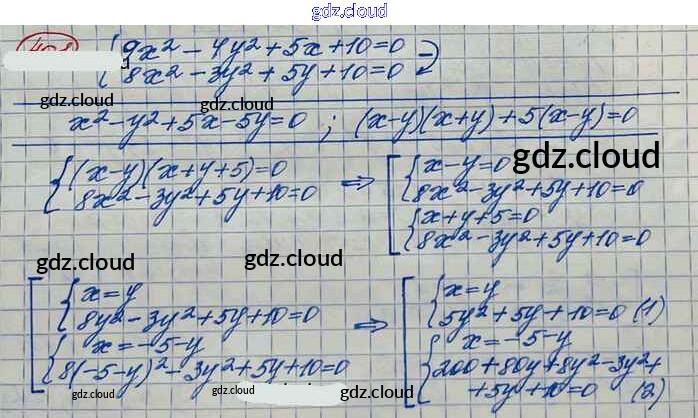 gdz.cloud
9x² - 4y² + 5x + 10 = 0
8x² - 3y² + 5y + 10 = 0
gdz.cloud gdz.cloud
x² - y² + 5x - 5y = 0 ; (x-y)(x+y) + 5(x-y) = 0
{(x-y)(x+y+5) = 0
8x² - 3y² + 5y + 10 = 0
⇒ [{x - y = 0
8x² - 3y² + 5y + 10 = 0
{x + y + 5 = 0
8x² - 3y² + 5y + 10 = 0
gdz.cloud
gdz.cloud
gdz.cloud
gdz.cloud
[{x = y
8y² - 3y² + 5y + 10 = 0
{x = -5-y
8(-5-y)² - 3y² + 5y + 10 = 0
gdz.cloud
⇒ [{x = y
5y² + 5y + 10 = 0 (1)
{x = -5-y
200 + 80y + 8y² - 3y² +
+ 5y + 10 = 0 (2)
gdz.cloud
gdz.cloud